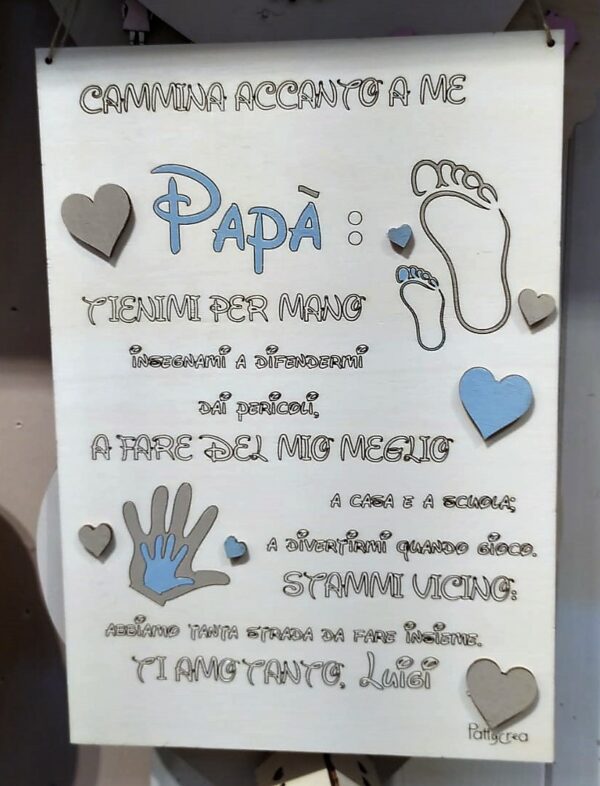 CAMMINA ACCANTO A ME
PAPÀ :
TIENIMI PER MANO
INSEGNAMI A DIFENDERMI
DAI PERICOLI,
A FARE DEL MIO MEGLIO
A CASA E A SCUOLA;
A DIVERTIRMI QUANDO GIOCO.
STAMMI VICINO:
ABBIAMO TANTA STRADA DA FARE INSIEME.
TI AMO TANTO, LUIGI
PattyCrea